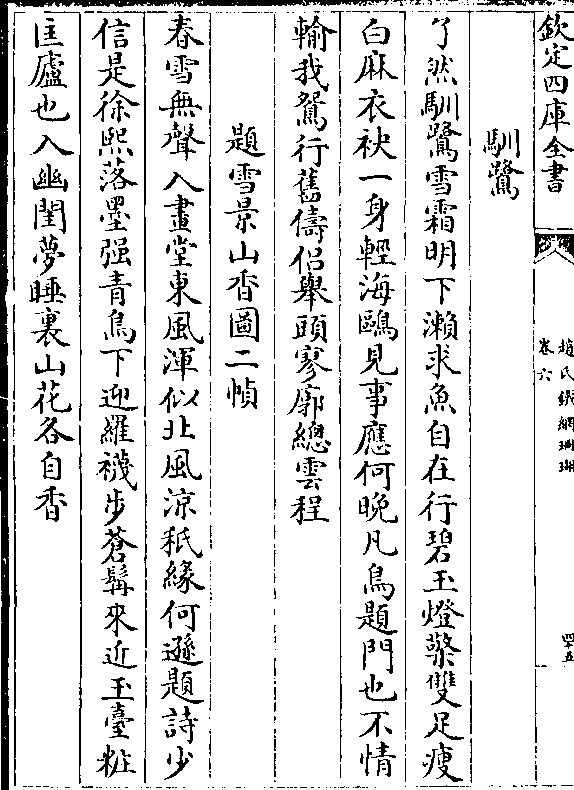 欽定四庫全書
趙氏鐵網珊瑚
卷六
四十五
馴鷺
了然馴鷺雪霜明下瀨求魚自在行碧玉燈檠雙足瘦
白麻衣袂一身輕海鷗見事應何晚凡鳥題門也不情
輸我鴛行舊儔侣舉頭寥廓總雲程
題雪景山香圖二幀
春雪無聲入畫堂東風渾似北風涼秖緣何遜題詩少
信是徐熙落墨强青鳥下迎羅襪步蒼髯來近玉臺粧
匡廬也入幽閨夢睡裏山花各自香